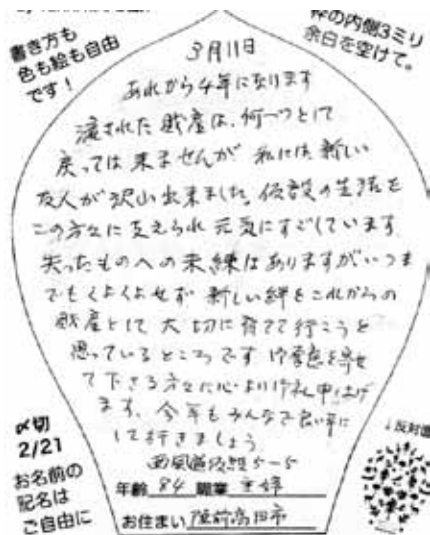 書き方も
色も絵も自由
です!
枠の内側3ミリ
余白を空けて。
3月11日
あれから4年になります
流された財産は、何一つとして
戻っては来ませんが 私には、新しい
友人が沢山出来ました。仮設の生活を
この方々に支えられ元気にすごしています
失ったものへの未練はありますがいつま
でもくよくよせず 新しい絆をこれからの
財産として大切に育てて行こうと
思っているところです 御厚意を寄せ
て下さる方々に心より御礼申し上げ
ます、今年もみんなで良い年に
して行きましょう
5-5
〆切
2/21
お名前の
記名は
ご自由に
↓反対面
年齢 84 職業 主婦
お住まい 陸前高田市